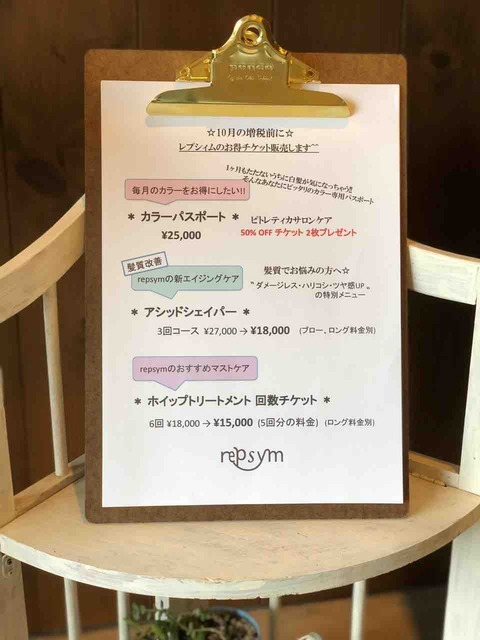 ☆10月の増税前に☆
レプシィムのお得チケット販売します^^
1ヶ月もたたないうちに白髪が気になっちゃう!!
そんなあなたにピッタリのカラー専用パスポート
毎月のカラーをお得にしたい!!
* カラーパスポート *
¥25,000
ピトレティカサロンケア
50% OFF チケット 2枚プレゼント
髪質改善
repsymの新エイジングケア
髪質でお悩みの方へ☆
"ダメージレス・ハリコシ・ツヤ感UP"
の特別メニュー
* アシッドシェイパー *
3回コース ¥27,000 → ¥18,000 (ブロー、ロング料金別)
repsymのおすすめマストケア
* ホイップトリートメント 回数チケット *
6回 ¥18,000 → ¥15,000 (5回分の料金) (ロング料金別)
repsym